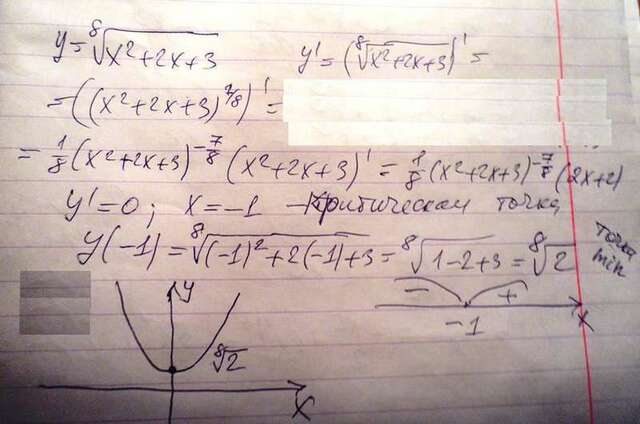 y = ⁸√(x²+2x+3)   y' = (⁸√(x²+2x+3))' =
= ((x²+2x+3)^(1/8))' =
= 1/8 (x²+2x+3)^(-7/8) (x²+2x+3)' = 1/8 (x²+2x+3)^(-7/8) (2x+2)
y' = 0; x = -1 – критическая точка
y(-1) = ⁸√((-1)²+2(-1)+3) = ⁸√(1-2+3) = ⁸√2 точка min
− +
-1 x
y
⁸√2
x